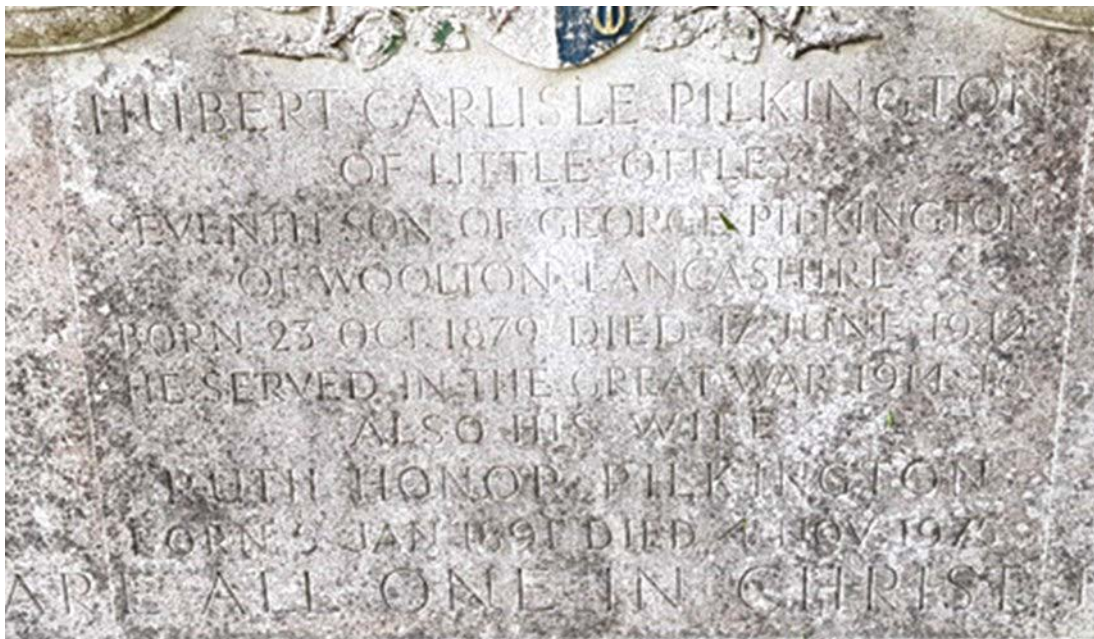 HUBERT CARLISLE PILKINGTON
OF LITTLE OFFLEY
SEVENTH SON OF GEORGE PILKINGTON
OF WOOLTON LANCASHIRE
BORN 23 OCT 1879 DIED 17 JUNE 1942
HE SERVED IN THE GREAT WAR 1914-18
ALSO HIS WIFE
RUTH HONOR PILKINGTON
BORN JAN 1891 DIED NOV
ARE ALL ONE IN CHRIST